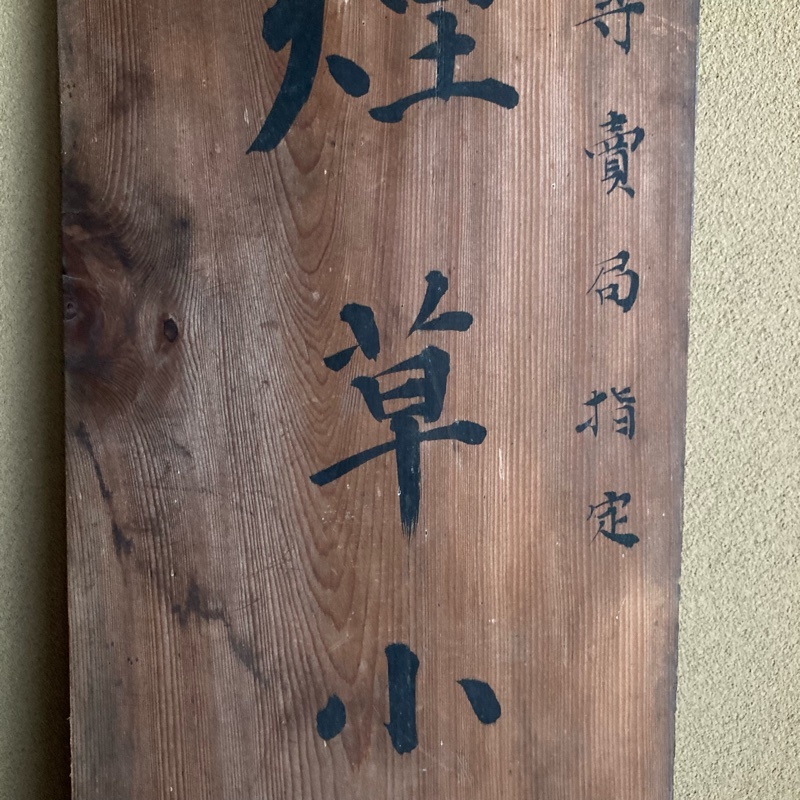 賣局指定
煙草小